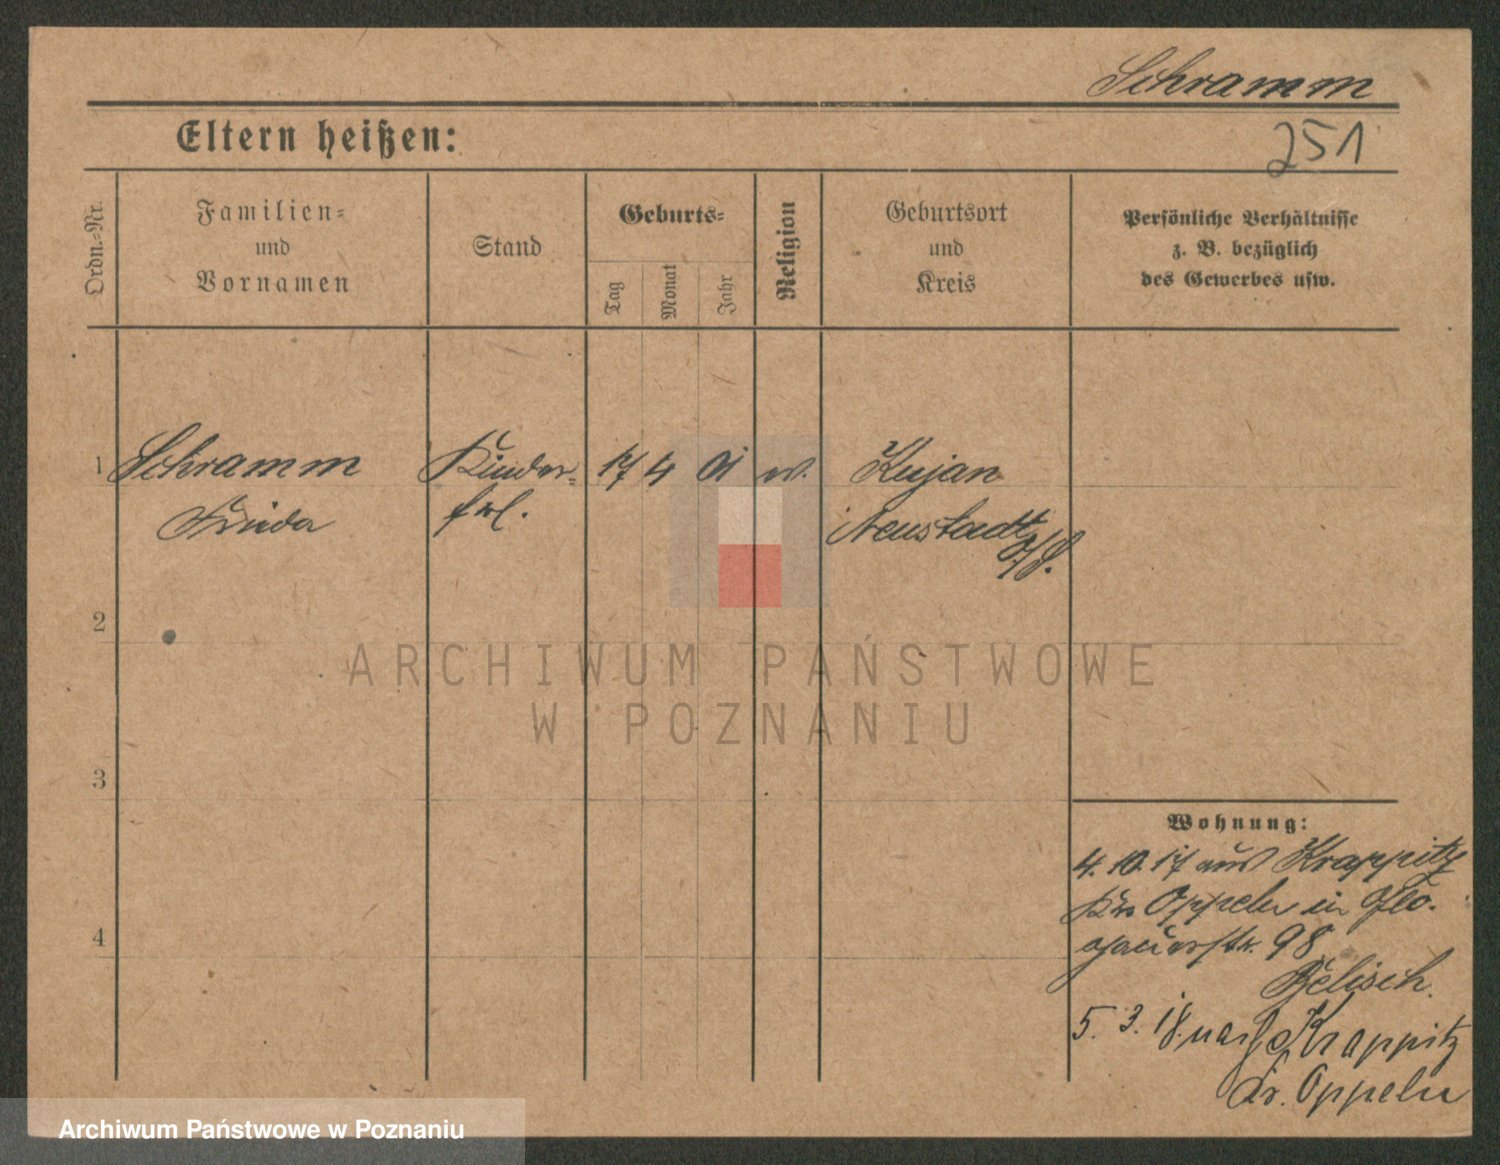 Schramm
Eltern heißen:
251
Ordn.-Nr.
Familien-
und
Vornamen
Stand
Geburts-
Tag
Monat
Jahr
Religion
Geburtsort
und
Kreis
Persönliche Verhältnisse
z. B. bezüglich
des Gewerbes usw.
1 Schramm Kinder- 17 4 Kujan
Frieda frl. Neustadt
2
3
4
ARCHIWUM PAŃSTWOWE
W POZNANIU
Wohnung:
4. 10. 17 aus Krappitz
Krs Oppeln in Glo-
gauerstr. 98
5. 3. 18. nach Krappitz
Kr. Oppeln
Archiwum Państwowe w Poznaniu